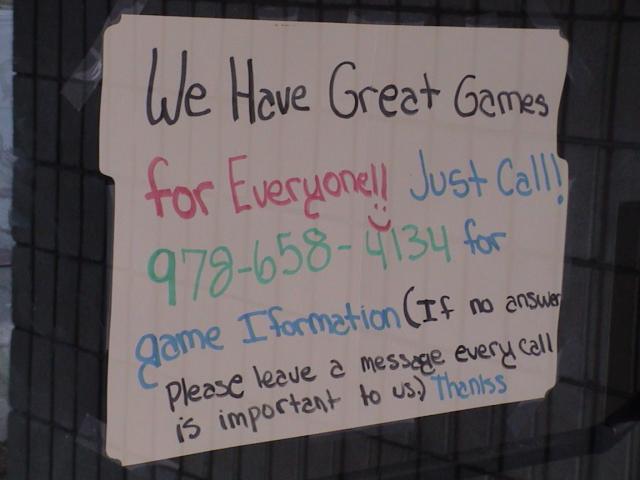 We Have Great Games
for Everyone!! Just Call!
978-658-4134 for
game Iformation (If no answer
Please leave a message every call
is important to us.) Thankss